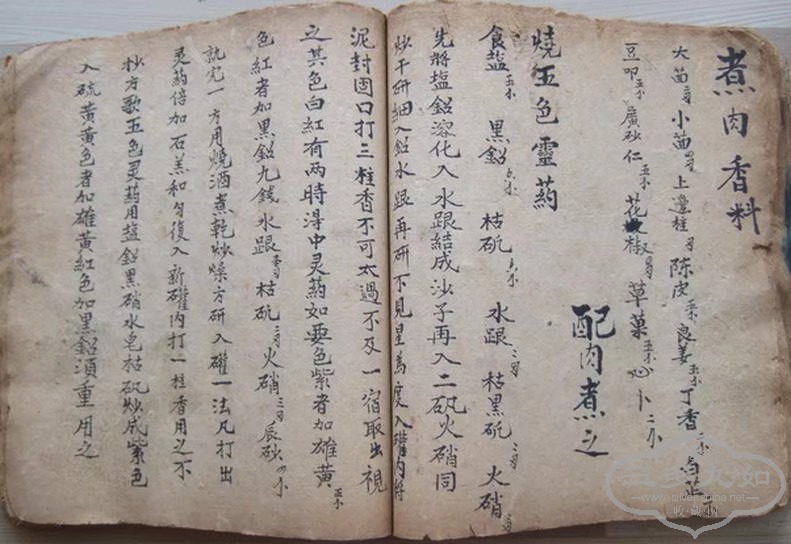 煮肉香料
大茴 小茴 上邊桂 陈皮 五小 良姜 五小 丁香 二小 白芷
豆叩 五小 廣砂仁 五小 花椒 草菓 五小 心卜 二小
配肉煮之
燒五色靈药
食盐 五小 黑鉛 枯矾 水跟 枯黑矾 火硝
先將盐鉛溶化入水跟結成沙子再入二矾火硝同
炒干研細入鉛水跟再研不見星為度入礶内將
泥封固口打三柱香不可太過不及一宿取出視
之其色白紅有两時淂中灵药如要色紫者加雄黄 五小
色紅者加黑鉛九錢水跟 枯矾 火硝 辰砂 四小
執完一方用燒酒煮乾炒燥方研入礶一法凡打出
灵药倍加石羔和匀復入新礶内打一柱香用之不
炒方歌五色灵药用盐鉛黑硝水皂枯矾炒成紫色
入硫黄黄色者加雄黄紅色加黑鉛須重用之